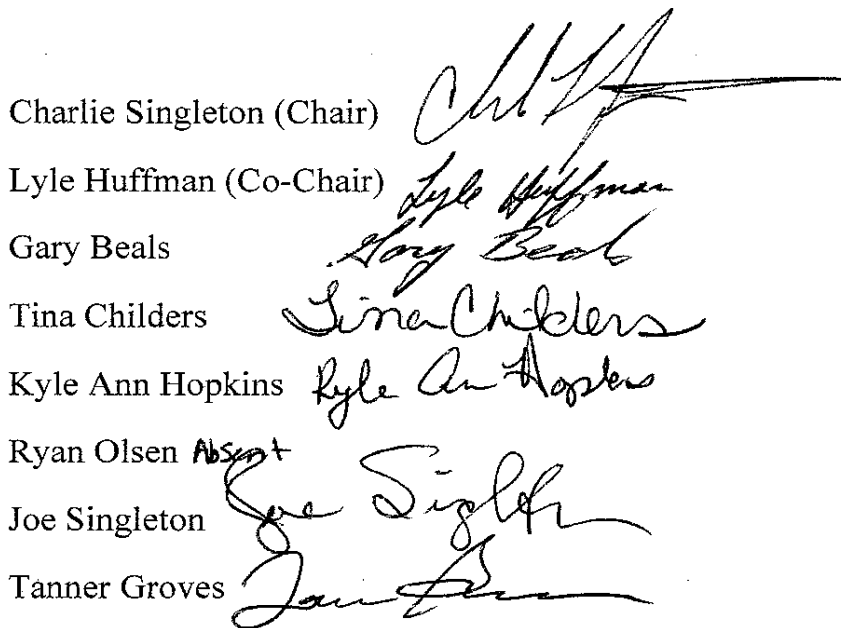 Charlie Singleton (Chair)
Lyle Huffman (Co-Chair) Lyle Huffman
Gary Beals Gary Beals
Tina Childers Tina Childers
Kyle Ann Hopkins Kyle Ann Hopkins
Ryan Olsen Absent
Joe Singleton Joe Singleton
Tanner Groves